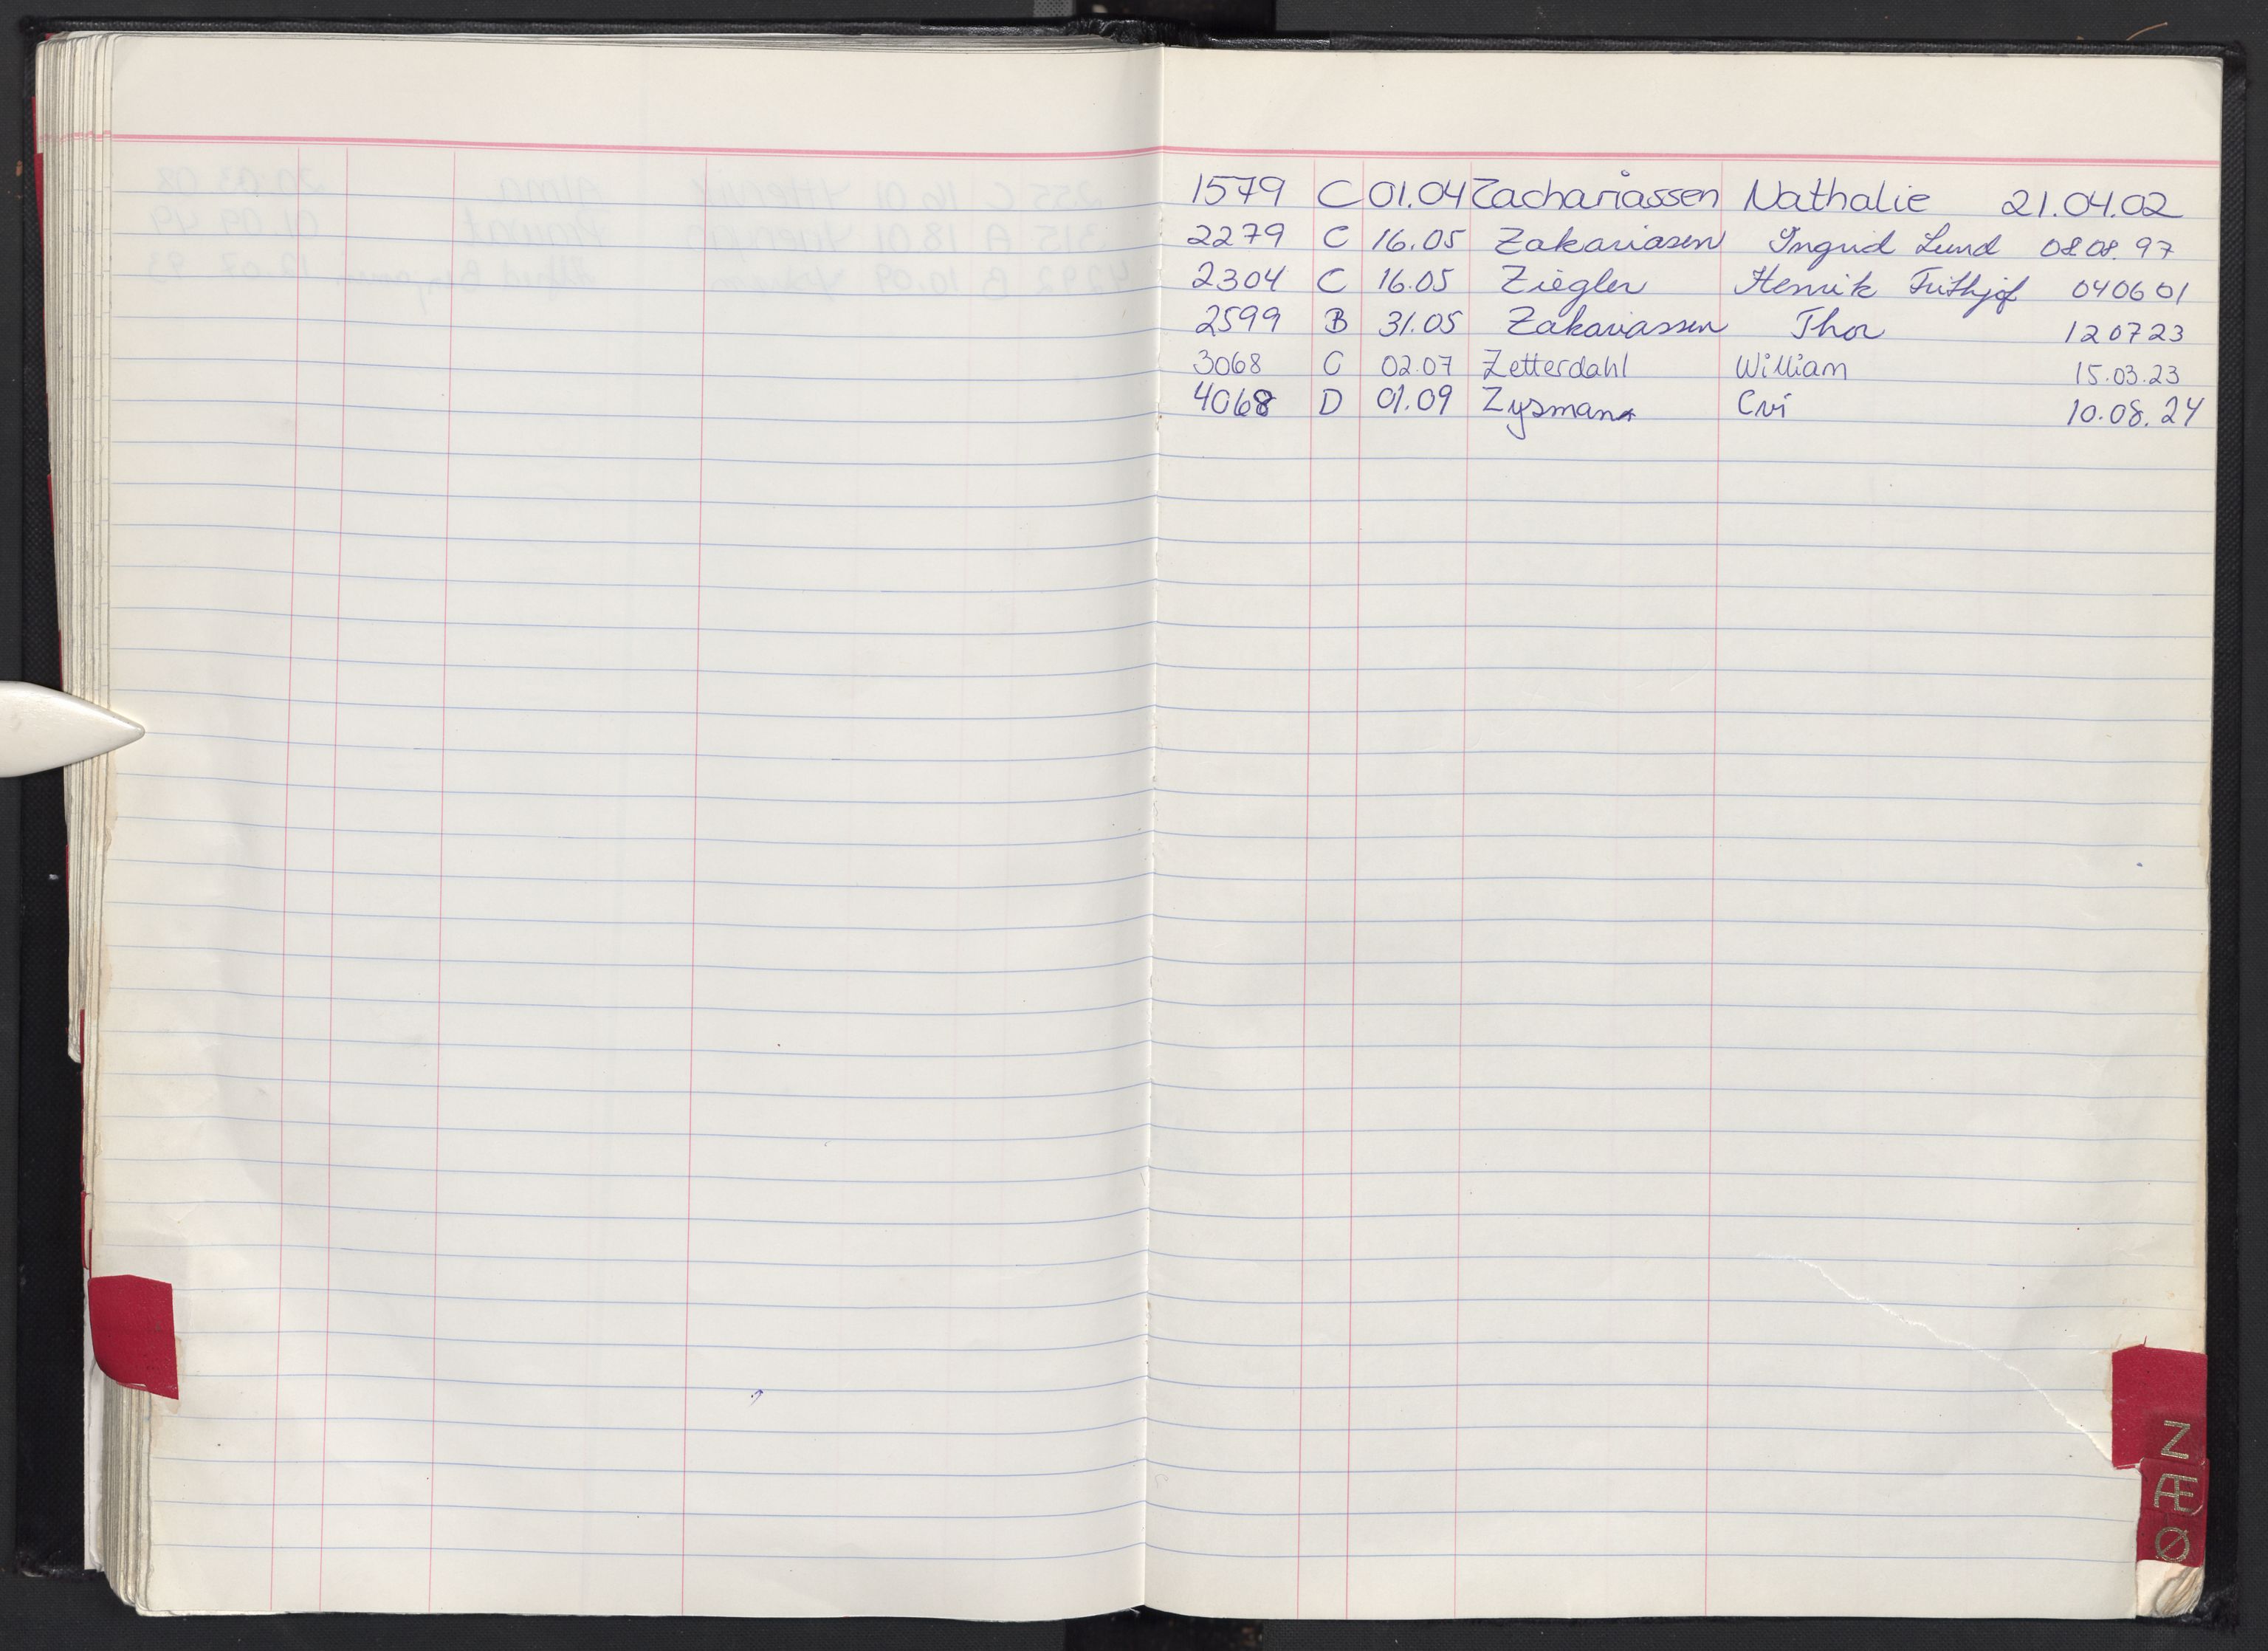 1579 C 01.04 Zachariassen Nathalie 21.04.02
2279 C 16.05 Zakariasen Ingrid Lund 08.08.97
2304 C 16.05 Ziegler Henrik Frithjof 040601
2599 B 31.05 Zakariassen Thor 120723
3068 C 02.07 Zetterdahl William 15.03.23
4068 D 01.09 Zysman Cvi 10.08.24
Z
Æ
Ø